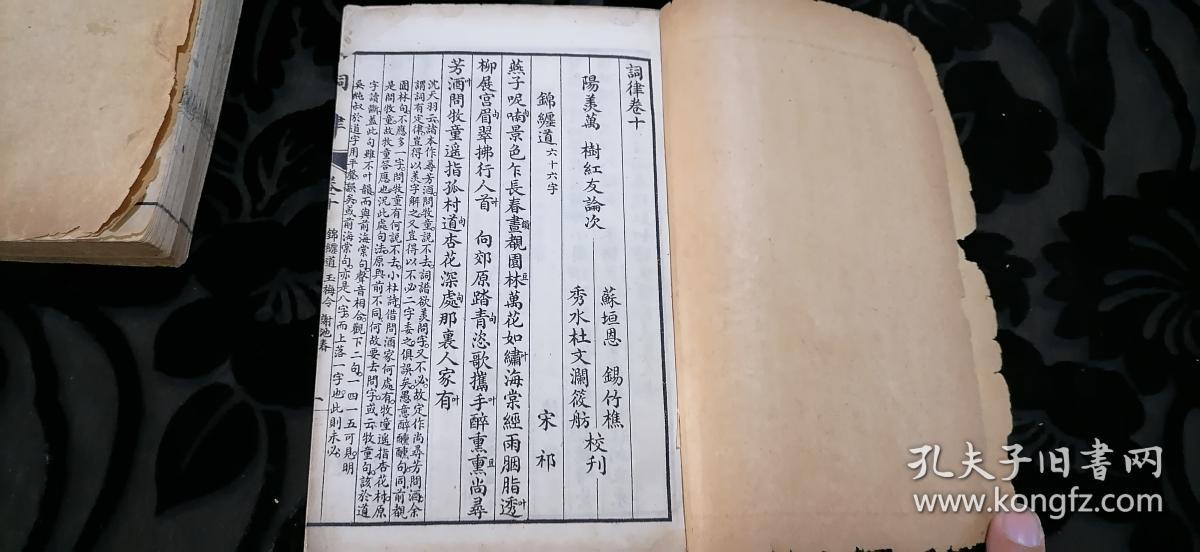 詞律卷十
陽羨萬 樹紅友論次
蘇垣恩 錫竹樵
秀水杜文瀾筱舫
校刊
錦纏道 六十六字
宋 祁
燕子呢喃句景色乍長春晝韻覩園林豆萬花如繡叶海棠經雨胭脂透叶
柳展宮眉句翠拂行人首叶 向郊原踏青句恣歌攜手叶醉熏熏豆尚尋
芳酒叶問牧童遙指孤村道句杏花深處句那裏人家有叶
沈天羽云諸本作尋芳酒問牧童說不去詞譜欲美問字又不必故定作尚尋芳問酒余
謂詞有定律豈得以美字解之又豈得以不必二字委之俱誤矣愚意醉醺醺句同前覩
園林句不應多一字問牧童有何說不去小杜詩借問酒家何處有牧童遙指杏花村原
是問牧童故牧童答應也況此處句法原與前不同何故要去問字或云牧童句該於道
字讀斷蓋此句雖不叶韻而與前海棠句聲音相合觀下二句一四一五可見明
吳純叔於道字用平聲誤矣或前海棠句亦是八字而上落一字也此則未必
詞律
卷十
錦纏道 玉梅令 謝池春
一
孔夫子旧书网
www.kongfz.com